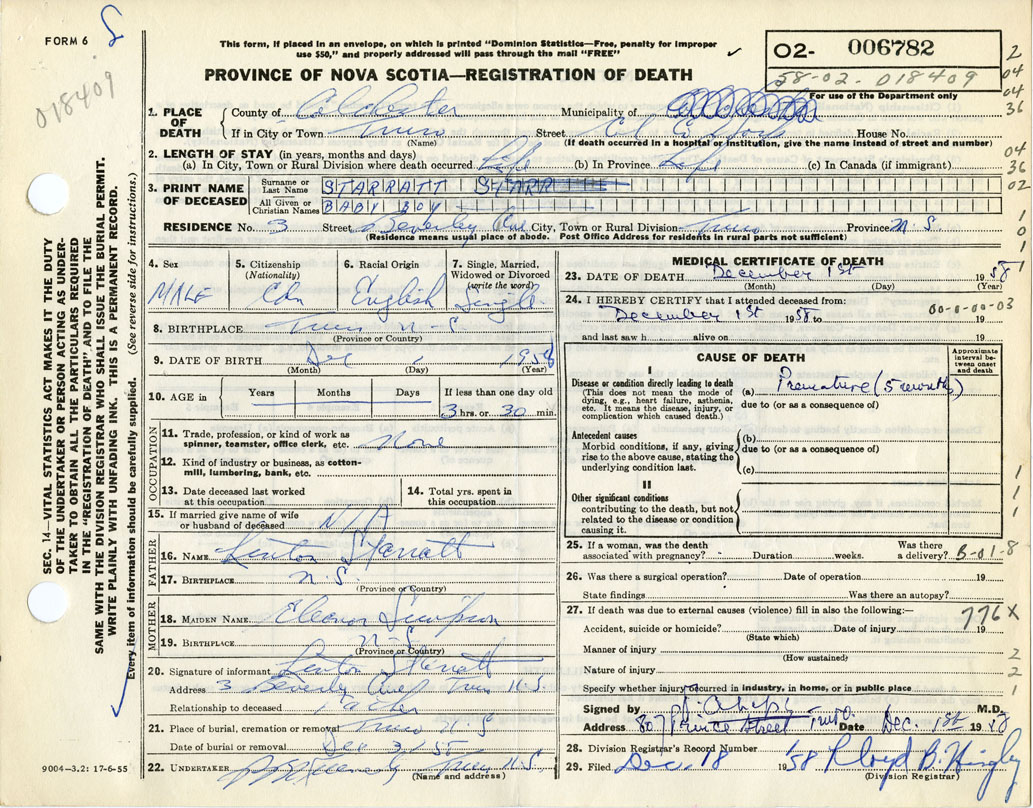 FORM 6
This form, if placed in an envelope, on which is printed "Dominion Statistics—Free, penalty for improper
use $50," and properly addressed will pass through the mail "FREE"
02- 006782
58-02-018409
For use of the Department only
018409
PROVINCE OF NOVA SCOTIA—REGISTRATION OF DEATH
1. PLACE OF DEATH
County of Colchester Municipality of
If in City or Town Truro Street House No.
(Name) (If death occurred in a hospital or institution, give the name instead of street and number)
2. LENGTH OF STAY (in years, months and days)
(a) In City, Town or Rural Division where death occurred Life (b) In Province Life (c) In Canada (if immigrant)
3. PRINT NAME OF DECEASED
Surname or Last Name STARRATT STARR
All Given or Christian Names BABY BOY
RESIDENCE No. 3 Street Beverley Ave City, Town or Rural Division Truro Province N.S.
(Residence means usual place of abode. Post Office Address for residents in rural parts not sufficient)
4. Sex MALE
5. Citizenship (Nationality) Cdn
6. Racial Origin English
7. Single, Married, Widowed or Divorced (write the word) Single
8. BIRTHPLACE Truro N-S
(Province or Country)
9. DATE OF BIRTH Dec 1 1958
(Month) (Day) (Year)
10. AGE in Years Months Days If less than one day old
3 hrs. or 30 min.
OCCUPATION
11. Trade, profession, or kind of work as spinner, teamster, office clerk, etc. None
12. Kind of industry or business, as cotton-mill, lumbering, bank, etc.
13. Date deceased last worked at this occupation
14. Total yrs. spent in this occupation
15. If married give name of wife or husband of deceased N/A
FATHER
16. NAME Starratt
17. BIRTHPLACE N.S.
(Province or Country)
MOTHER
18. MAIDEN NAME Eleanor Simpson
19. BIRTHPLACE N-S
(Province or Country)
20. Signature of informant Starratt
Address 3 Beverly Ave Truro N.S.
Relationship to deceased Father
21. Place of burial, cremation or removal Truro N.S
Date of burial or removal Dec 3/58
22. UNDERTAKER Truro N-S
(Name and address)
9004—3.2: 17-6-55
MEDICAL CERTIFICATE OF DEATH
23. DATE OF DEATH December 1st 1958
(Month) (Day) (Year)
24. I HEREBY CERTIFY that I attended deceased from:
December 1st 1958 to 19
00-0-00-03
and last saw h alive on 19
CAUSE OF DEATH
Approximate interval between onset and death
I
Disease or condition directly leading to death
(This does not mean the mode of dying, e.g., heart failure, asthenia, etc. It means the disease, injury, or complication which caused death.)
(a) Premature (5 months)
due to (or as a consequence of)
Antecedent causes
Morbid conditions, if any, giving rise to the above cause, stating the underlying condition last.
(b)
due to (or as a consequence of)
(c)
II
Other significant conditions
contributing to the death, but not related to the disease or condition causing it.
25. If a woman, was the death associated with pregnancy? Duration weeks. Was there a delivery? B-01-8
26. Was there a surgical operation? Date of operation 19
State findings Was there an autopsy?
27. If death was due to external causes (violence) fill in also the following:—
776X
Accident, suicide or homicide? Date of injury 19
(State which)
Manner of injury
(How sustained)
Nature of injury
Specify whether injury occurred in industry, in home, or in public place
Signed by M.D.
Address 807 Prince Street Truro. Date Dec. 1st 1958
28. Division Registrar's Record Number
29. Filed Dec. 18 1958 Lloyd B.
(Division Registrar)
SEC. 14—VITAL STATISTICS ACT MAKES IT THE DUTY
OF THE UNDERTAKER OR PERSON ACTING AS UNDER-
TAKER TO OBTAIN ALL THE PARTICULARS REQUIRED
IN THE "REGISTRATION OF DEATH" AND TO FILE THE
SAME WITH THE DIVISION REGISTRAR WHO SHALL ISSUE THE BURIAL PERMIT.
WRITE PLAINLY WITH UNFADING INK. THIS IS A PERMANENT RECORD.
Every item of information should be carefully supplied. (See reverse side for instructions.)
2
04
04
36
04
36
02
1
0
1
1
1
1
1
2
2
1